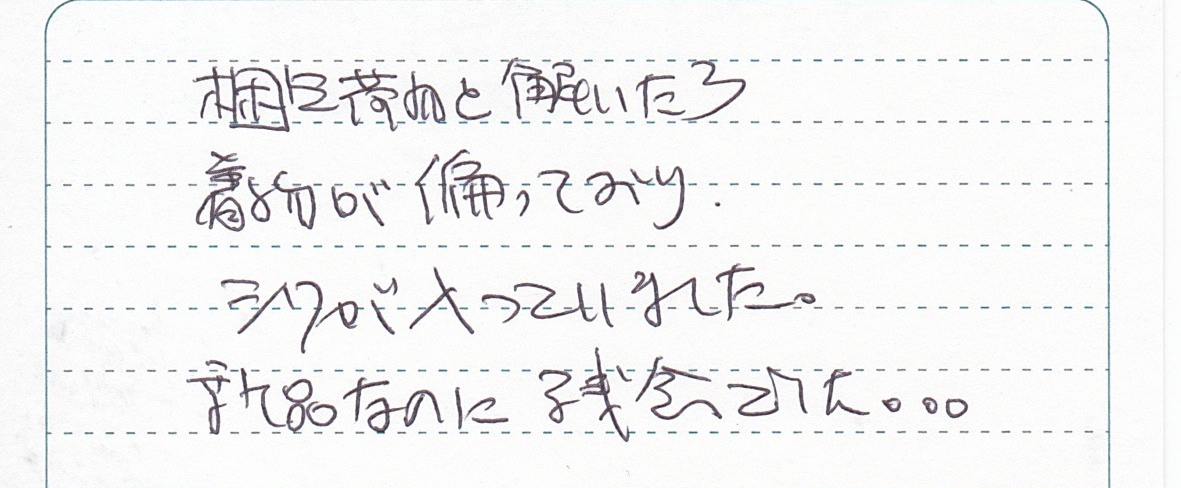 梱包荷物を解いたら
着物が偏っており、
シワが入っていました。
新品なのに残念でした。。。